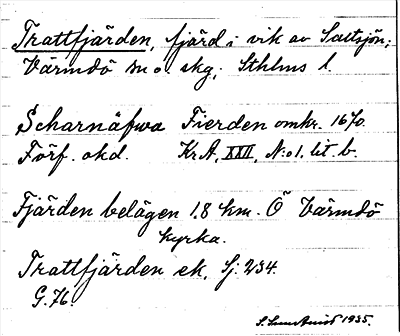 Trattfjärden, fjärd i vik av Saltsjön;
Värmdö sn o. skg; Sthlms l.
Scharnäfwa Fierden omkr. 1670.
Förf. okd. KrA, XXII, N:o 1. lit. b.
Fjärden belägen 1,8 km. Ö Värmdö
kyrka.
Trattfjärden ek. Sj. 234.
G. 76.
1935.